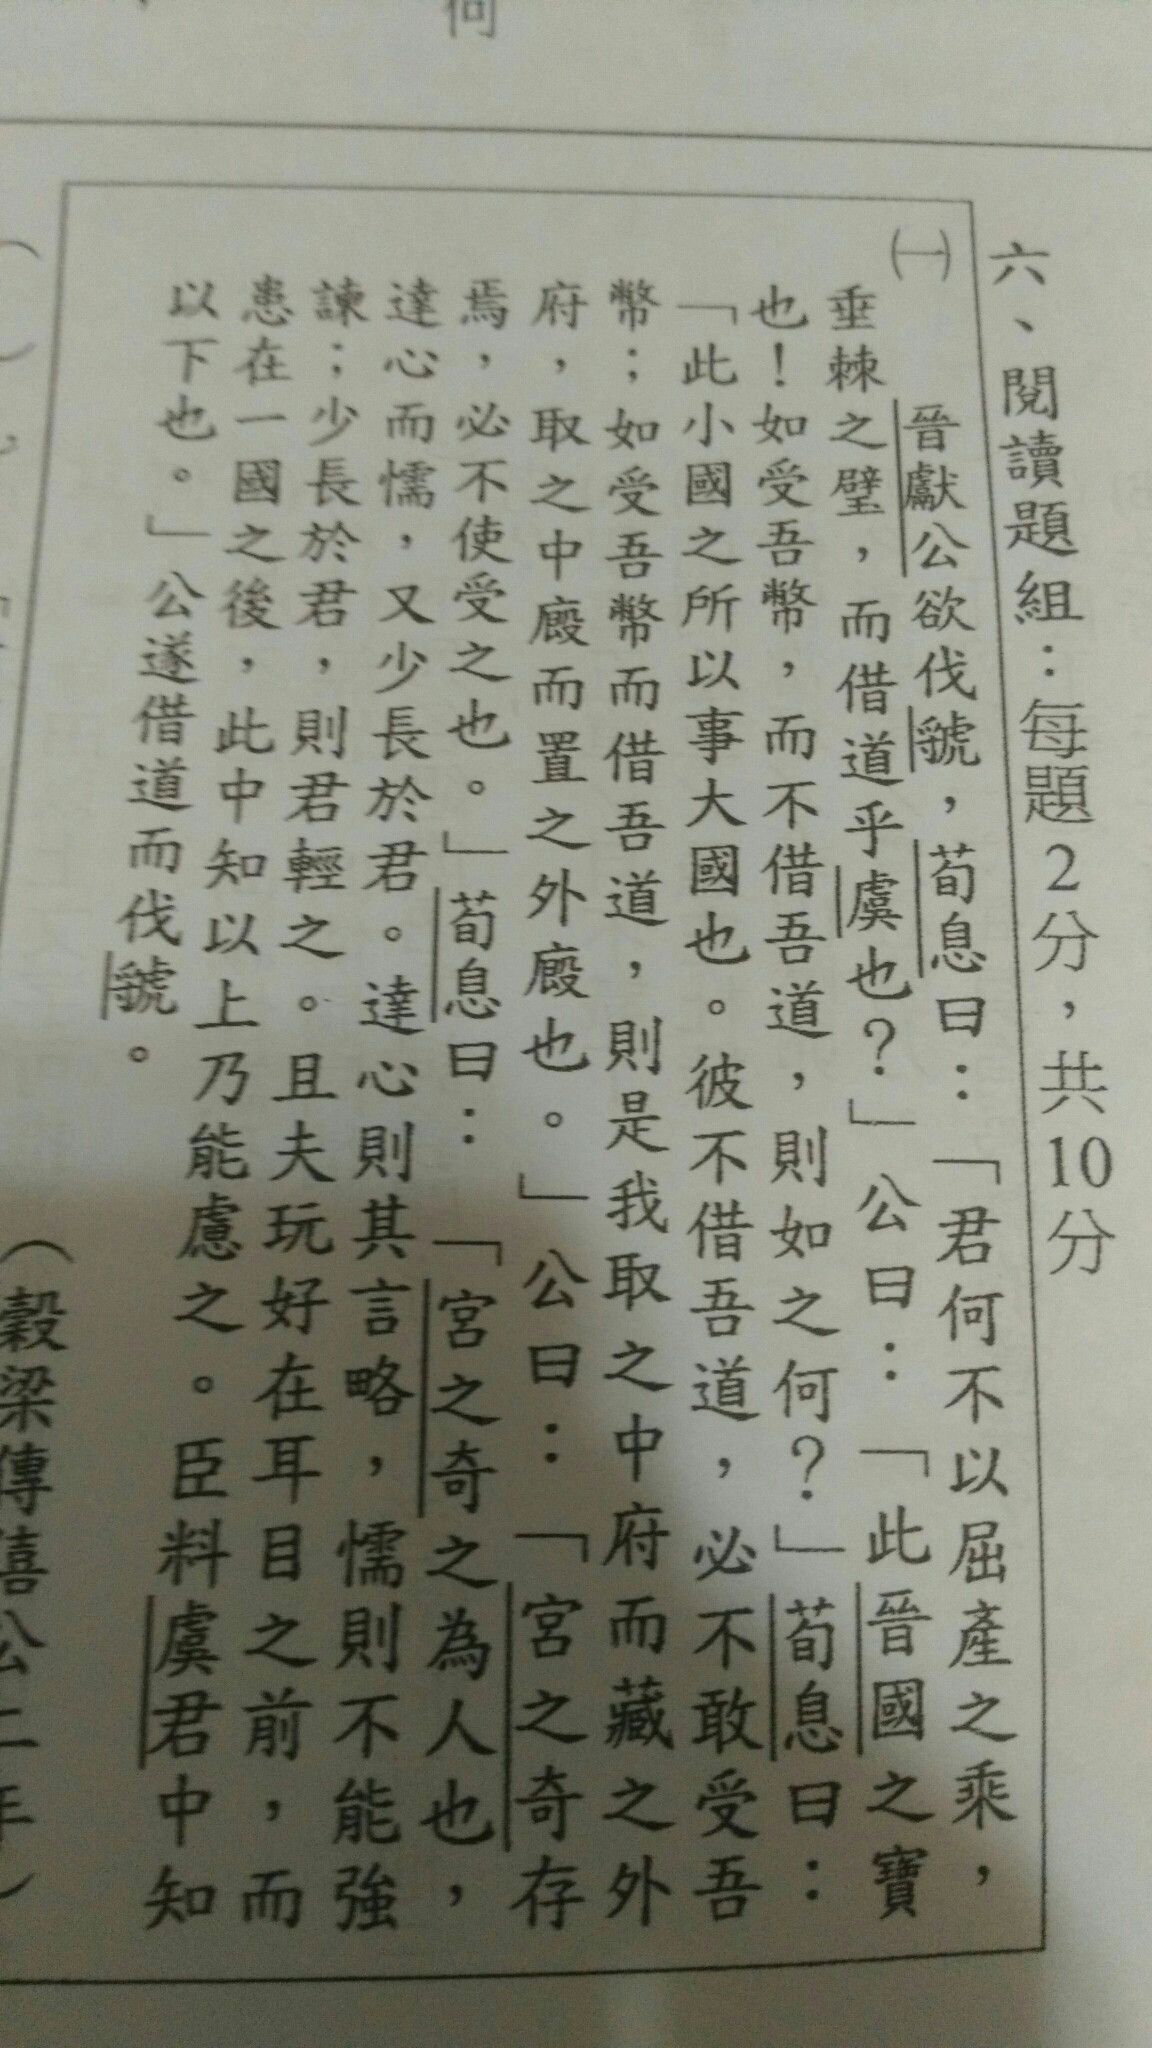 何
六、閱讀題組：每題2分，共10分
㈠
晉獻公欲伐虢，荀息曰：「君何不以屈產之乘，
垂棘之璧，而借道乎虞也？」公曰：「此晉國之寶
也！如受吾幣，而不借吾道，則如之何？」荀息曰：
「此小國之所以事大國也。彼不借吾道，必不敢受吾
幣；如受吾幣而借吾道，則是我取之中府而藏之外
府，取之中廄而置之外廄也。」公曰：「宮之奇存
焉，必不使受之也。」荀息曰：「宮之奇之為人也，
達心而懦，又少長於君。達心則其言略，懦則不能強
諫；少長於君，則君輕之。且夫玩好在耳目之前，而
患在一國之後，此中知以上乃能慮之。臣料虞君中知
以下也。」公遂借道而伐虢。
（穀梁傳僖公二年）